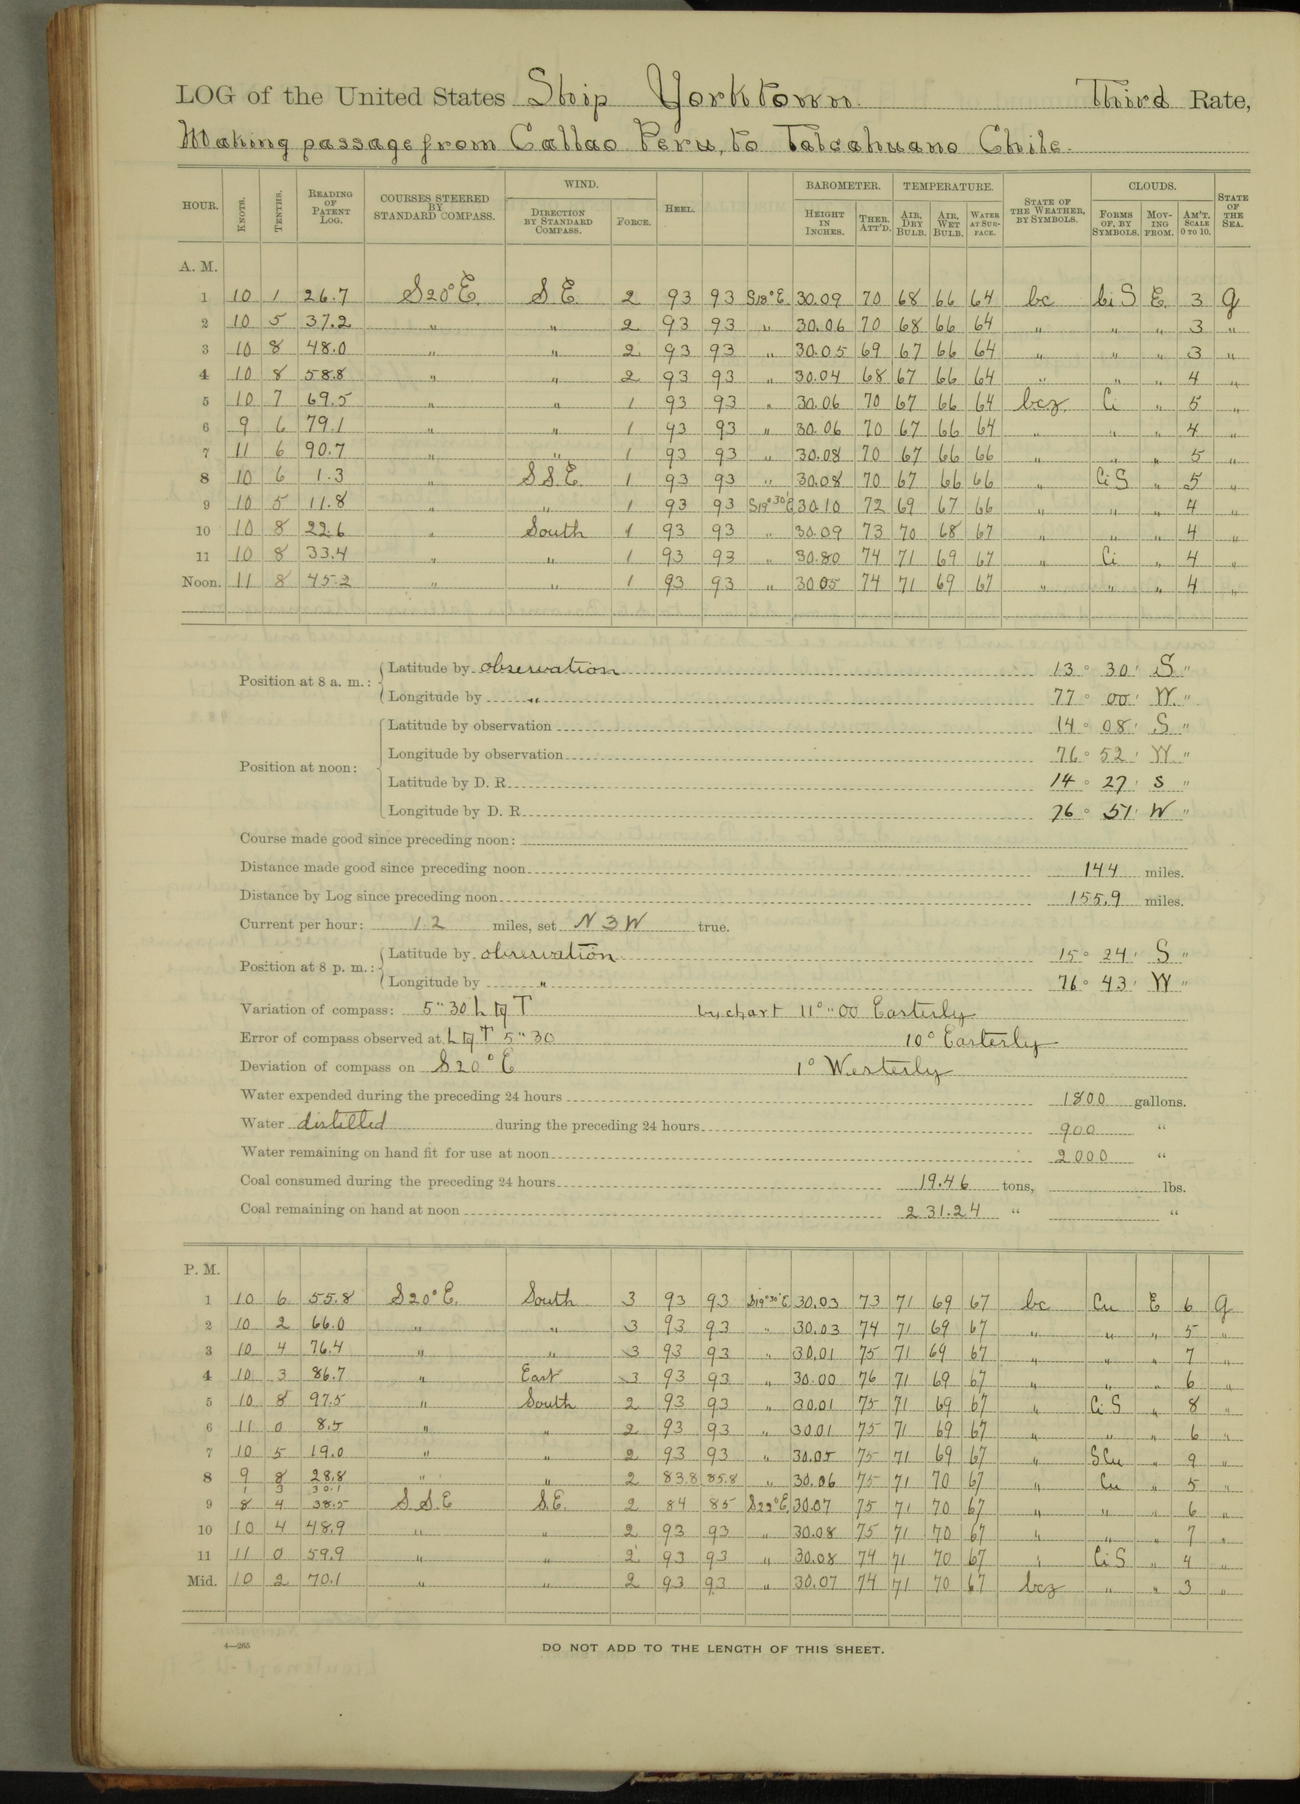 LOG of the United States Ship Yorktown. Third Rate,
Making passage from Callao Peru, to Talcahuano Chile.
HOUR. KNOTS. TENTHS. READING OF PATENT LOG. COURSES STEERED BY STANDARD COMPASS. WIND. DIRECTION BY STANDARD COMPASS. FORCE. HEEL. BAROMETER. HEIGHT IN INCHES. THER. ATT'D. TEMPERATURE. AIR, DRY BULB. AIR, WET BULB. WATER AT SURFACE. STATE OF THE WEATHER, BY SYMBOLS. CLOUDS. FORMS OF, BY SYMBOLS. MOVING FROM. AM'T. SCALE 0 TO 10. STATE OF THE SEA.
A. M.
1 10 1 26.7 S20°E. S E. 2 93 93 S18°E 30.09 70 68 66 64 bc Ci S E. 3 g
2 10 5 37.2 " " 2 93 93 " 30.06 70 68 66 64 " " " 3 "
3 10 8 48.0 " " 2 93 93 " 30.05 69 67 66 64 " " " 3 "
4 10 8 58.8 " " 2 93 93 " 30.04 68 67 66 64 " " " 4 "
5 10 7 69.5 " " 1 93 93 " 30.06 70 67 66 64 bcz Ci " 5 "
6 9 6 79.1 " " 1 93 93 " 30.06 70 67 66 64 " " " 4 "
7 11 6 90.7 " " 1 93 93 " 30.08 70 67 66 66 " " " 5 "
8 10 6 1.3 " S S E. 1 93 93 " 30.08 70 67 66 66 " Ci S " 5 "
9 10 5 11.8 " " 1 93 93 S19°30'E 30.10 72 69 67 66 " " " 4 "
10 10 8 22.6 " South 1 93 93 " 30.09 73 70 68 67 " " " 4 "
11 10 8 33.4 " " 1 93 93 " 30.80 74 71 69 67 " Ci " 4 "
Noon. 11 8 45.2 " " 1 93 93 " 30.05 74 71 69 67 " " " 4 "
Position at 8 a. m.: Latitude by observation 13° 30' S "
Longitude by " 77° 00' W. "
Position at noon: Latitude by observation 14° 08' S "
Longitude by observation 76° 52' W "
Latitude by D. R. 14° 27' S "
Longitude by D. R. 76° 51' W "
Course made good since preceding noon:
Distance made good since preceding noon 144 miles.
Distance by Log since preceding noon 155.9 miles.
Current per hour: 1.2 miles, set N 3 W true.
Position at 8 p. m.: Latitude by observation 15° 24' S "
Longitude by " 76° 43' W "
Variation of compass: 5" 30 by chart 11°" 00 Easterly
Error of compass observed at 5" 30 10° Easterly
Deviation of compass on S 20° E 1° Westerly
Water expended during the preceding 24 hours 1800 gallons.
Water distilled during the preceding 24 hours 900 "
Water remaining on hand fit for use at noon 2000 "
Coal consumed during the preceding 24 hours 19.46 tons, lbs.
Coal remaining on hand at noon 231.24 " "
P. M.
1 10 6 55.8 S20°E. South 3 93 93 S19°30'E 30.03 73 71 69 67 bc Cu E 6 g
2 10 2 66.0 " " 3 93 93 " 30.03 74 71 69 67 " " " 5 "
3 10 4 76.4 " " 3 93 93 " 30.01 75 71 69 67 " " " 7 "
4 10 3 86.7 " East 3 93 93 " 30.00 76 71 69 67 " " " 6 "
5 10 8 97.5 " South 2 93 93 " 30.01 75 71 69 67 " Ci S " 8 "
6 11 0 8.5 " " 2 93 93 " 30.01 75 71 69 67 " " " 6 "
7 10 5 19.0 " " 2 93 93 " 30.05 75 71 69 67 " S Cu " 9 "
8 9 8 28.8 " " 2 83.8 85.8 " 30.06 75 71 70 67 " Cu " 5 "
1 3 30.1
9 8 4 38.5 S S E S.E. 2 84 85 S22°E. 30.07 75 71 70 67 " " " 6 "
10 10 4 48.9 " " 2 93 93 " 30.08 75 71 70 67 " " " 7 "
11 11 0 59.9 " " 2 93 93 " 30.08 74 71 70 67 " Ci S " 4 "
Mid. 10 2 70.1 " " 2 93 93 " 30.07 74 71 70 67 bcz " " 3 "
4—265
DO NOT ADD TO THE LENGTH OF THIS SHEET.